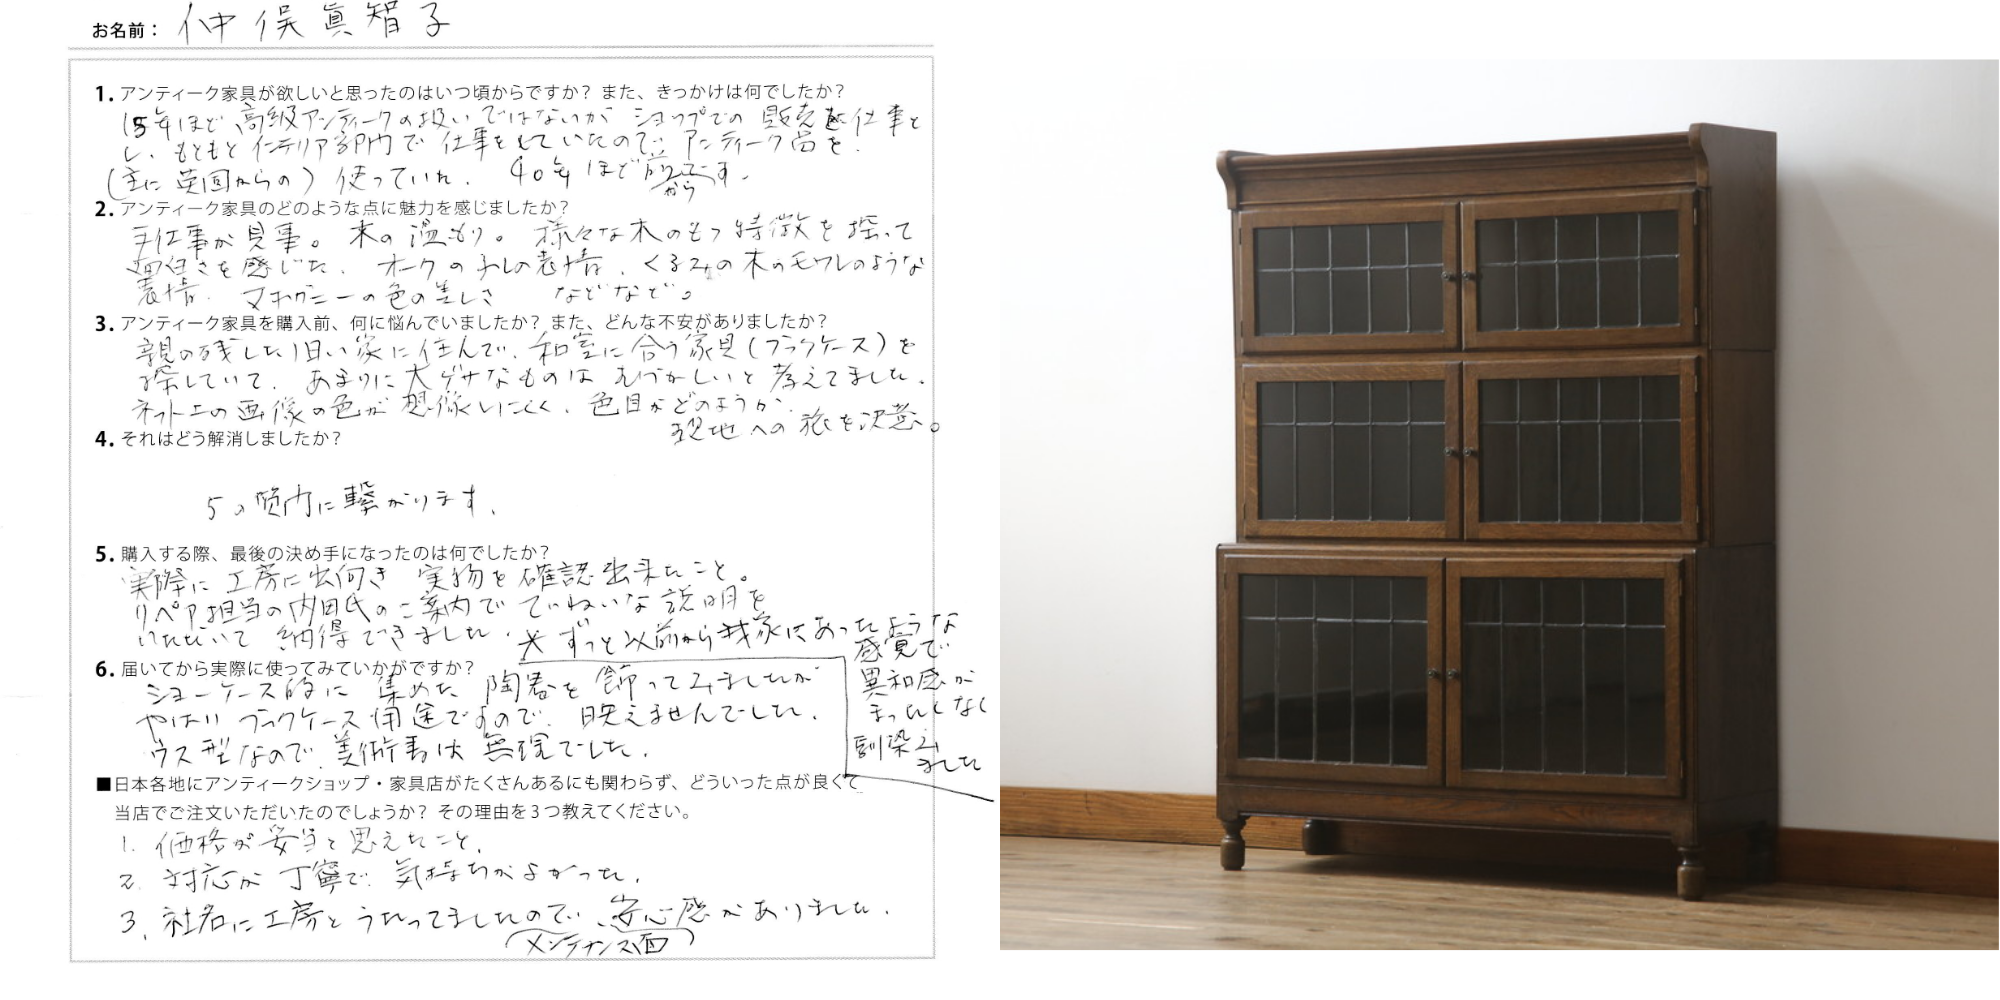 お名前： 仲俣眞智子
1. アンティーク家具が欲しいと思ったのはいつ頃からですか? また、きっかけは何でしたか?
15年ほど、高級アンティークの扱いではないが ショップでの 販売を仕事と
し、もともと インテリア部門で 仕事をしていたので、アンティーク品を
(主に 英国からの) 使っていた。 40年ほど前からです。
2. アンティーク家具のどのような点に魅力を感じましたか?
手仕事が見事。木の温もり。様々な木のもつ特徴を探って
面白さを感じた。オークの 表情、くるみの木のモウレのような
表情、マホガニーの色の美しさ などなど。
3. アンティーク家具を購入前、何に悩んでいましたか? また、どんな不安がありましたか?
親の残した旧い家に住んで、和室に合う家具(ブックケース)を
探していて、あまりに大ゲサなものは むづかしいと 考えてました。
ネット上の画像の色が想像しにくく、色目がどのようか、
現地への旅を決意。
4. それはどう解消しましたか?
5の質問に繋がります。
5. 購入する際、最後の決め手になったのは何でしたか?
実際に工房に出向き 実物を確認出来たこと。
リペア担当の内田氏のご案内で ていねいな説明を
いただいて 納得できました。 ※ ずっと以前から我家にあったような
感覚で
異和感が
まったくなく
馴染み
ました
6. 届いてから実際に使ってみていかがですか?
ショーケース的に 集めた 陶器を 飾ってみましたが
やはり ブックケース用途ですので、映えませんでした。
ウス型なので、美術書は 無理でした。
■日本各地にアンティークショップ・家具店がたくさんあるにも関わらず、どういった点が良くて
当店でご注文いただいたのでしょうか? その理由を3つ教えてください。
1. 価格が妥当と思えたこと。
2. 対応が 丁寧で、気持ちがよかった。
3. 社名に工房とうたってましたので、安心感がありました。
(メンテナンス面)